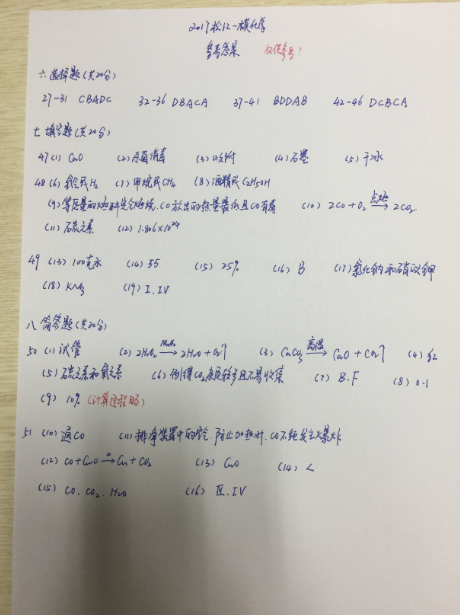 2017松江一模化学
参考答案 仅供参考!
六、选择题(共20分)
27-31 CBADC 32-36 DBACA 37-41 BDDAB 42-46 DCBCA
七、填空题(共20分)
47(1) CaO (2)杀菌消毒 (3)吸附 (4)石墨 (5)干冰
48(6)氢气或H₂ (7)甲烷或CH₄ (8)酒精或C₂H₅OH
(9)等质量的燃料完全燃烧,CO放出的热量最低且CO有毒 (10) 2CO+O₂ 点燃→ 2CO₂
(11)碳元素 (12) 1.806×10²⁴
49 (13)100毫升 (14) 55 (15) 25% (16) B (17)氯化钠和硝酸钾
(18) KNO₃ (19) I、IV
八、简答题(共20分)
50 (1)试管 (2) 2H₂O₂ MnO₂→ 2H₂O+O₂↑ (3) CaCO₃ 高温→ CaO+CO₂↑ (4)红
(5)碳元素和氧元素 (6)制得CO₂ (7) B、F (8) 0.1
(9) 10% (计算过程略)
51 (10)通CO (11)排净装置中的空气,防止加热时,CO不纯发生爆炸
(12) CO+CuO △→ Cu+CO₂ (13) CuO (14) <
(15) CO、CO₂、H₂O (16) Ⅱ、IV